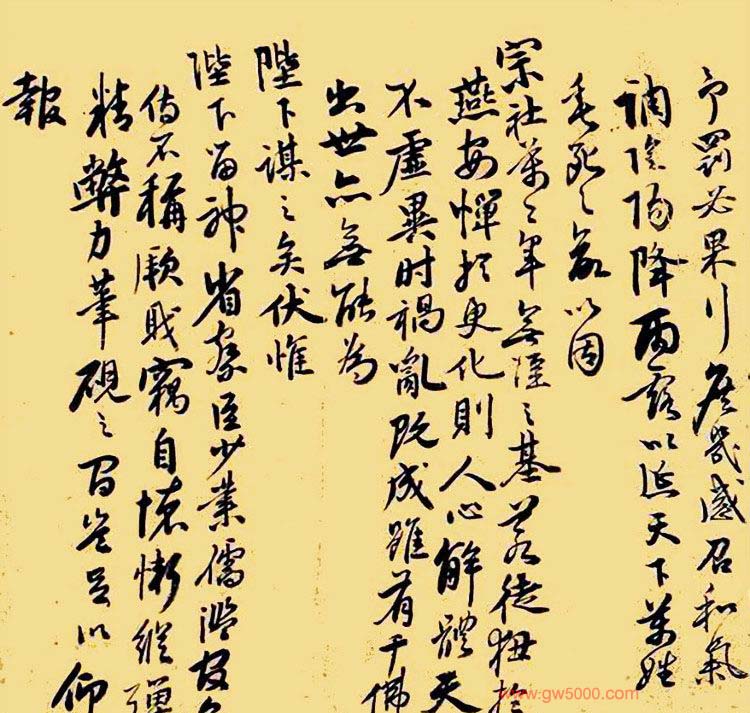 予罰必果行庶幾感召和氣
調陰陽降雨露以延天下萬姓
垂死之以固
宗社萬々年無疆之基若徒狃於
燕安憚於更化則人心解體天
不虛異时禍亂既成雖有千佛
出世亦無能為
陛下謀之矣伏惟
陛下留神省察臣少業儒濫
侍不稱厥職竊自懷慚縱殫
精弊力筆硯之間豈足以仰
報
www.gw5000.com